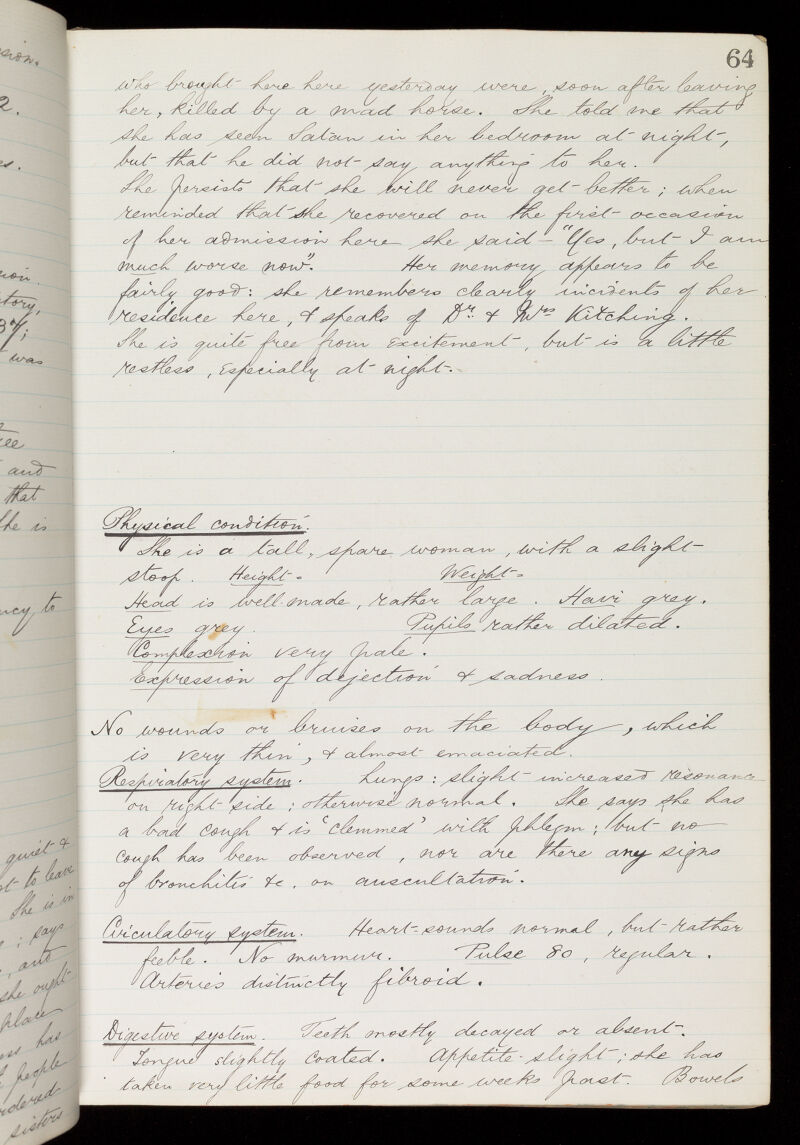 64
who brought here here yesterday were, soon after leaving
her, killed by a mad horse. She told me that
she has seen Satan in her bedroom at night,
but that he did not say anything to her.
She persists that she will never get better; when
reminded that she recovered on the first occasion
of her admission here she said - "Yes, but I am
much worse now". Her memory appears to be
fairly good: she remembers clearly incidents of her
residence here, & speaks of Dr. & Mrs Kitching.
She is quite free from excitement, but is a little
restless, especially at night.
Physical condition.
She is a tall, spare woman, with a slight
stoop. Height. Weight.
Head is well made, rather large. Hair grey.
Eyes grey. Pupils rather dilated.
Complexion very pale.
Expression of dejection & sadness.
No wounds or bruises on the body, which
is very thin, & almost emaciated.
Respiratory system. Lungs: slight increased resonance
on right side; otherwise normal. She says she has
a bad cough & is 'clemmed' with phlegm; but no
cough has been observed, nor are there any signs
of bronchitis &c. on auscultation.
Circulatory system. Heart-sounds normal, but rather
feeble. No murmur. Pulse 80, regular.
Arteries distinctly fibroid.
Digestive system. Teeth mostly decayed or absent.
Tongue slightly coated. Appetite slight; she has
taken very little food for some weeks past. Bowels
sion.
2.
es.
tory,
37;
was
ee
and
that
She is
ncy to
quiet &
to leave
She is in
; says
, and
she ought
place
has
people
rdered
sisters